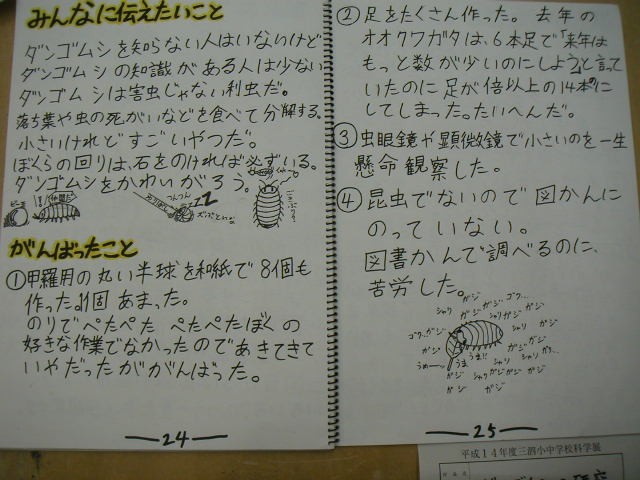 みんなに伝えたいこと
ダンゴムシを知らない人はいないけど
ダンゴムシの知識がある人は少ない
ダンゴムシは害虫じゃない利虫だ。
落ち葉や虫の死がいなどを食べて分解する。
小さいけれどすごいやつだ。
ぼくらの回りは、石をのければ必ずいる。
ダンゴムシをかわいがろう。
がんばったこと
①甲羅用の丸い半球を和紙で8個も
作った。1個あまった。
のりでぺたぺた ぺたぺたぼくの
好きな作業でなかったのであきてきて
いやだったががんばった。
24
②足をたくさん作った。去年の
オオクワガタは、6本足で「来年は
もっと数が少いのにしよう」と言って
いたのに足が倍以上の14本に
してしまった。たいへんだ。
③虫眼鏡や顕微鏡で小さいのを一生
懸命観察した。
④昆虫でないので図かんに
のっていない。
図書かんで調べるのに、
苦労した。
ガジ ゴク…
シャリ ガジ ガジ ガジ
ガジ ガジ
うめ〜 うま うま!!
ガジ シャリ ガジ ガジ ガジ
ガジ ガジ
25
平成14年度三泗小中学校科学展